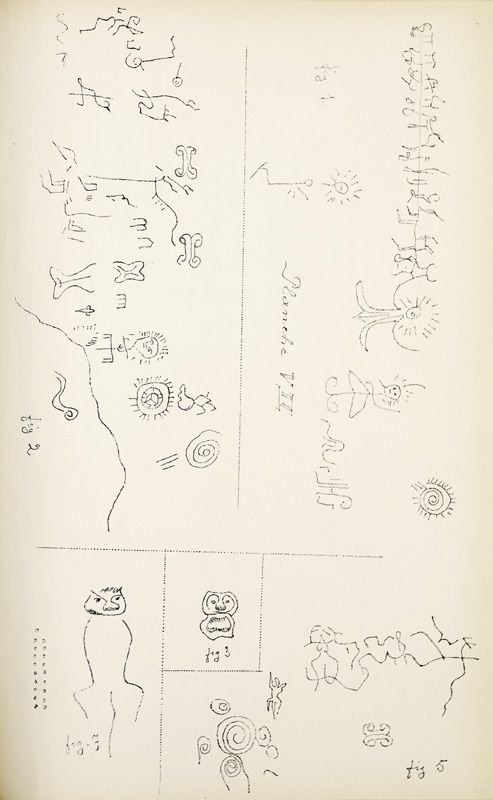 fig 1
Planche VIII
fig 2
fig 3
fig 5